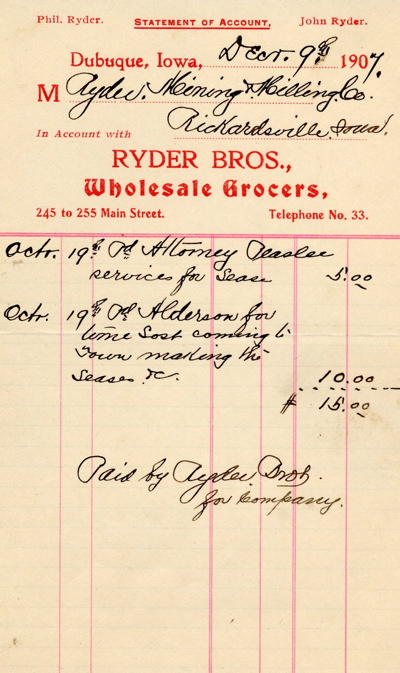 Phil. Ryder. STATEMENT OF ACCOUNT, John Ryder.
Dubuque, Iowa, Decr. 9th, 1907.
M Ryder Mining & Milling Co.
Rickardsville, Iowa.
In Account with
RYDER BROS.,
Wholesale Grocers,
245 to 255 Main Street. Telephone No. 33.
Octr. 19th Pd Attorney
services for Lease 5.00
Octr. 19th Pd Alderson for
time Lost coming to
Town making the
Leases &c. 10.00
$ 15.00
Paid by Ryder Bros.
for Company.